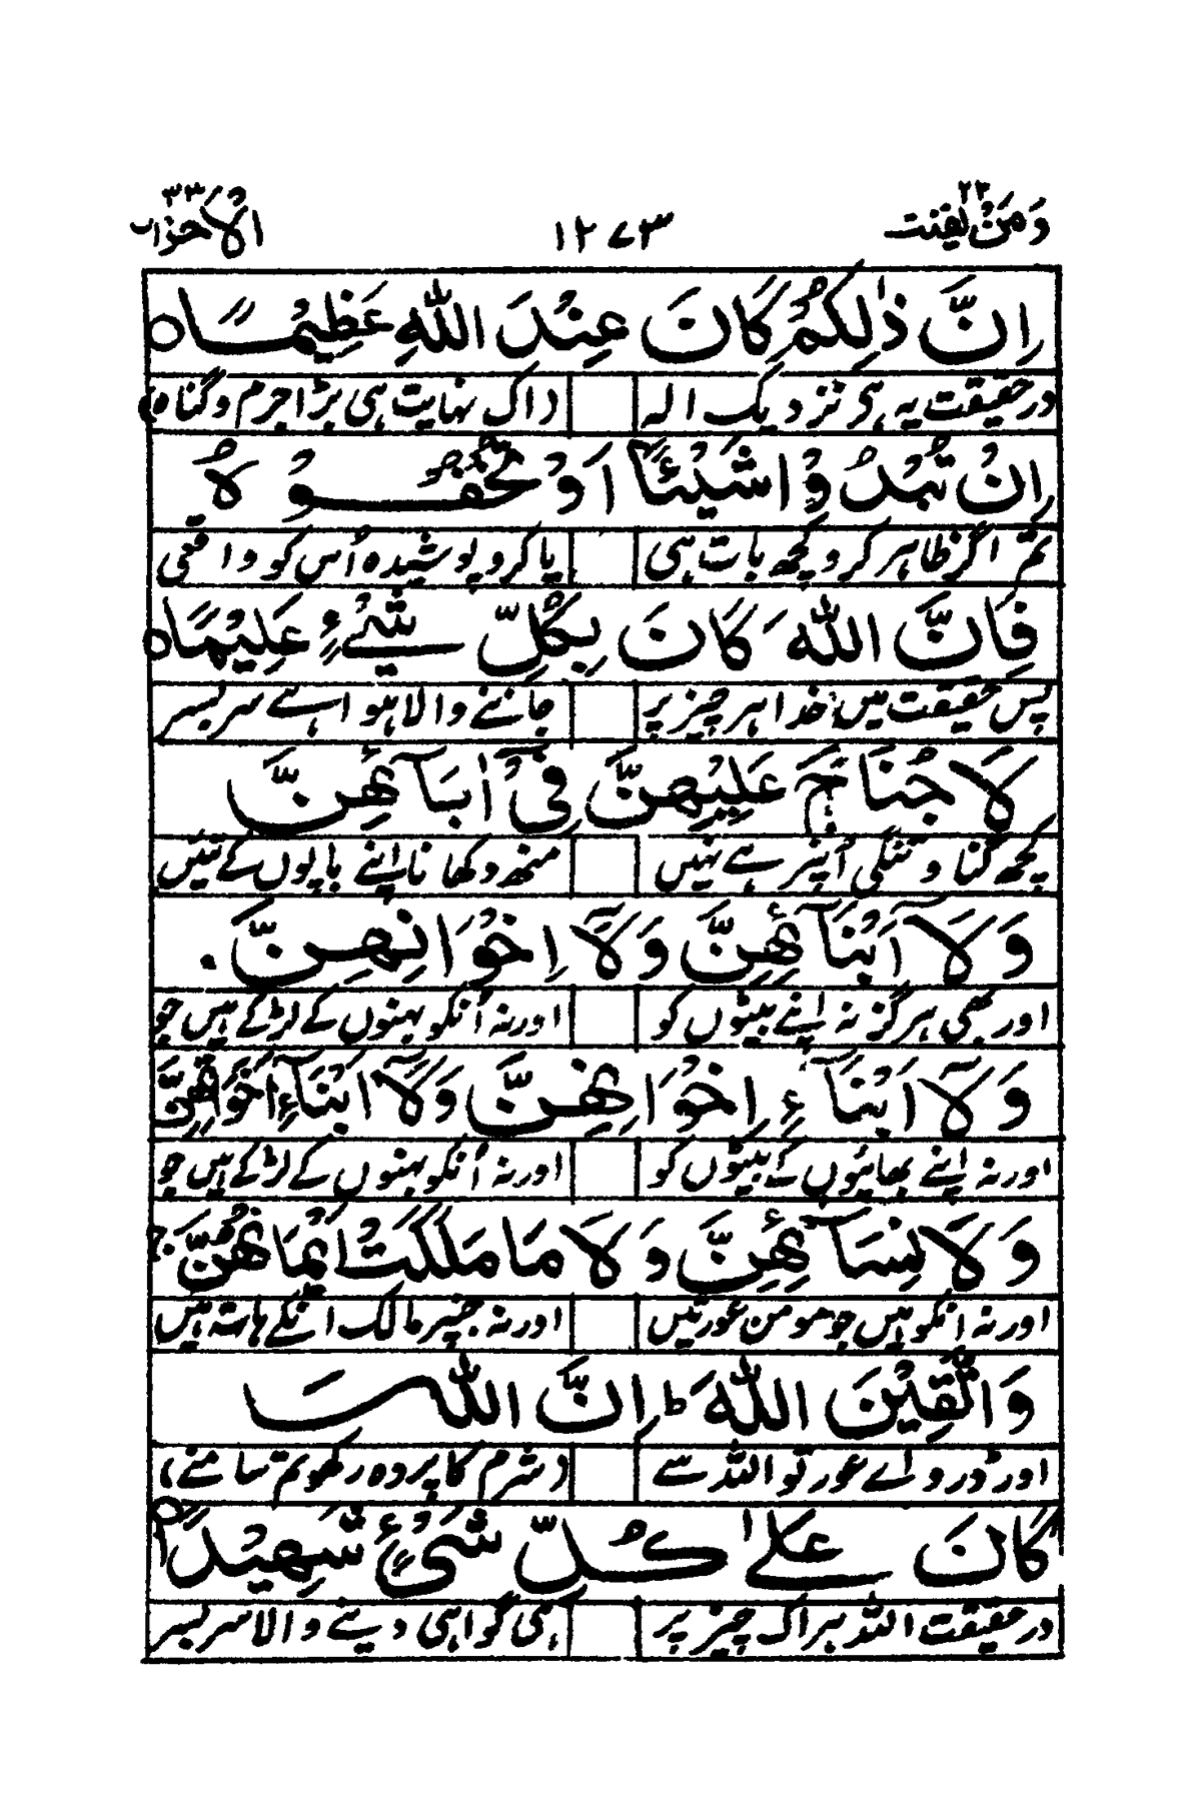 وَمَنْ يَّقْنُتْ ٢٢ ١٢٧٣ الْاَحْزَاب ٣٣
اِنَّ ذٰلِكُمْ كَانَ عِنْدَ اللّٰهِ عَظِيْمًا ○
در حقیقت یہ ہی نزدیک الہ (اک نہایت ہی بڑا جرم و گناہ)
اِنْ تُبْدُوْا شَيْئًا اَوْ تُخْفُوْهُ
تم اگر ظاہر کرو کچھ بات ہی یا کرو پوشیدہ اُس کو واقعی
فَاِنَّ اللّٰهَ كَانَ بِكُلِّ شَيْءٍ عَلِيْمًا ○
پس حقیقت میں خدا ہر چیز پر جاننے والا ہوا ہے سر بسر
لَا جُنَاحَ عَلَيْهِنَّ فِيْٓ اٰبَآئِهِنَّ
کچھ گنا و تنگی اُنپر ہے نہیں منھ دکھانا اپنے باپوں کے تئیں
وَلَآ اَبْنَآئِهِنَّ وَلَآ اِخْوَانِهِنَّ
اور بھی ہرگز نہ اپنے بیٹوں کو اور نہ اُنکو بہنوں کے لڑکے ہیں جو
وَلَآ اَبْنَآءِ اِخْوَانِهِنَّ وَلَآ اَبْنَآءِ اَخَوٰتِهِنَّ
اور نہ اپنے بھائیوں کے بیٹوں کو اور نہ اُنکو بہنوں کے لڑکے ہیں جو
وَلَا نِسَآئِهِنَّ وَلَا مَا مَلَكَتْ اَيْمَانُهُنَّ ج
اور نہ انکو ہیں جو مومن عورتیں اور نہ جنپر مالک انکے ہاتھ ہیں
وَاتَّقِيْنَ اللّٰهَ ط اِنَّ اللّٰهَ
اور ڈرو اے عورتو اللہ سے (شرم کا پردہ رکھو تم سامنے)
كَانَ عَلٰى كُلِّ شَيْءٍ شَهِيْدًا ○
در حقیقت اللہ ہر اک چیز پر ہی گواہی دینے والا سر بسر